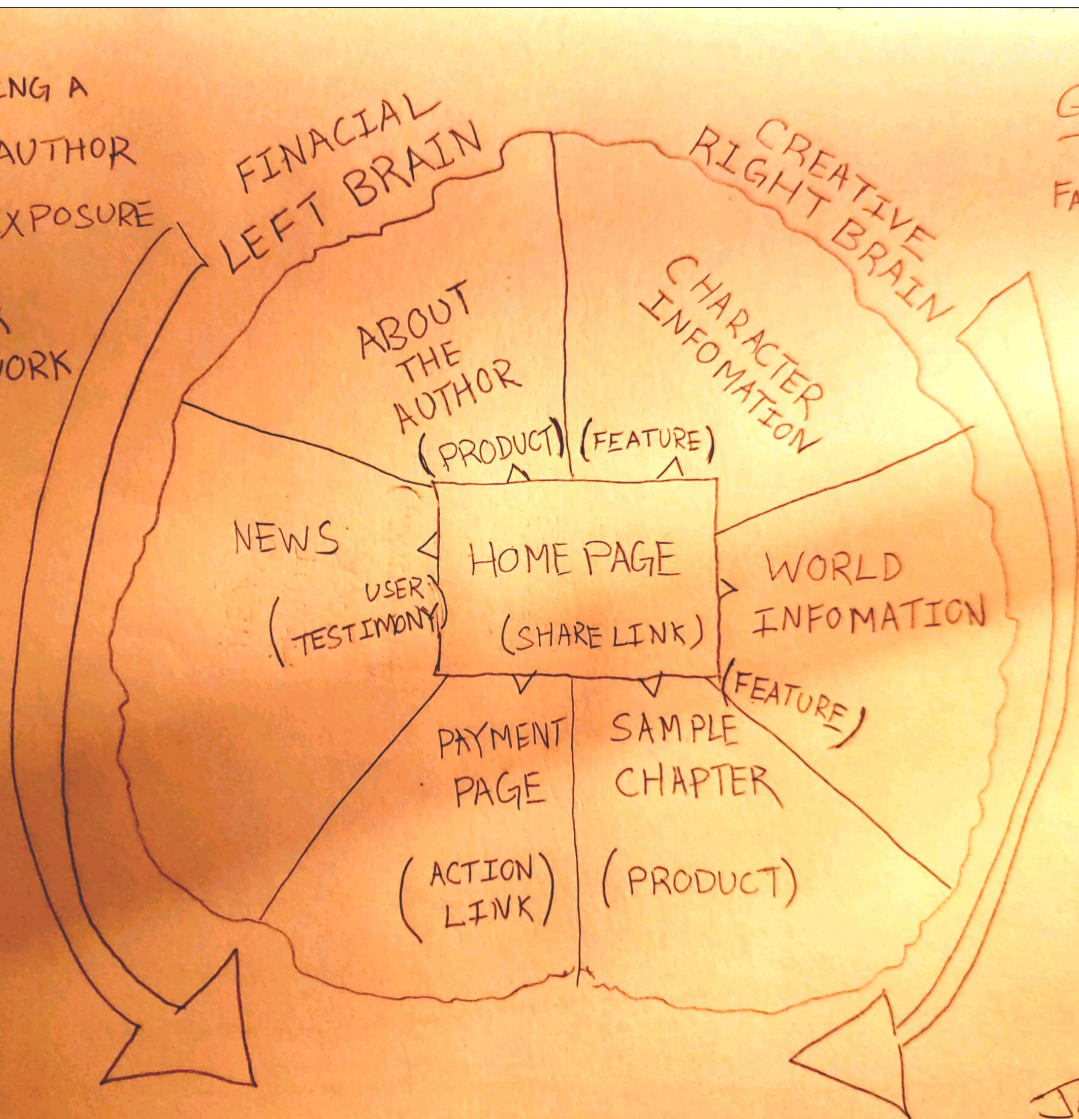 ING A
AUTHOR
XPOSURE
WORK
FINACIAL
LEFT BRAIN
CREATIVE
RIGHT BRAIN
FA
ABOUT
THE
AUTHOR
(PRODUCT)
CHARACTER
INFOMATION
(FEATURE)
NEWS
(USER
TESTIMONY)
HOME PAGE
(SHARE LINK)
WORLD
INFOMATION
(FEATURE)
PAYMENT
PAGE
(ACTION
LINK)
SAMPLE
CHAPTER
(PRODUCT)